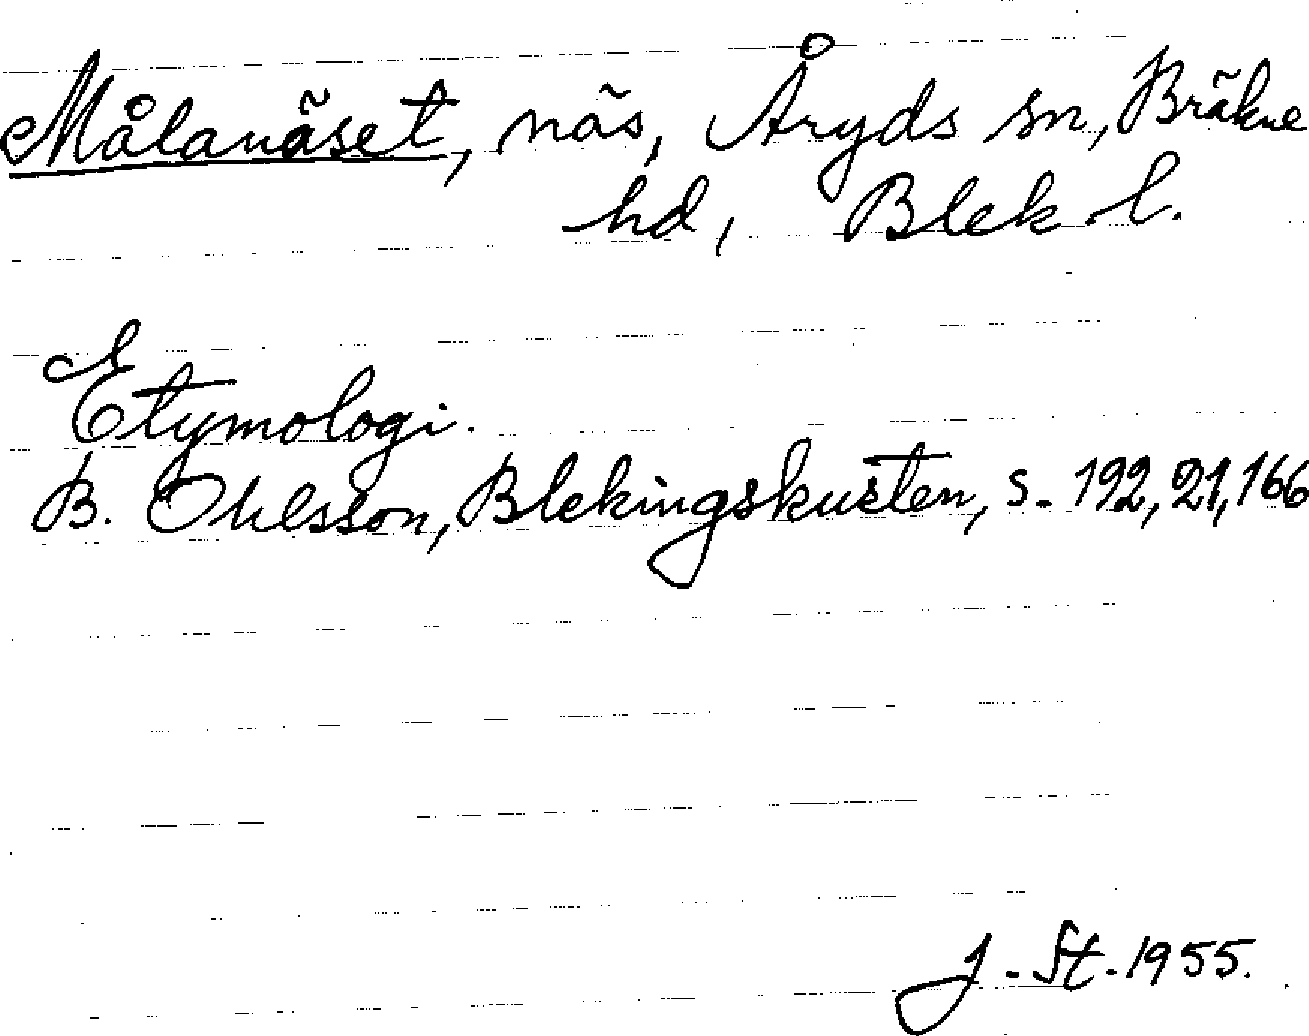 Målanäset, näs, Åryds sn, Bräkne
hd, Blek. l.
Etymologi.
B. Ohlsson, Blekingskusten, s. 192, 21, 166
J. St. 1955.